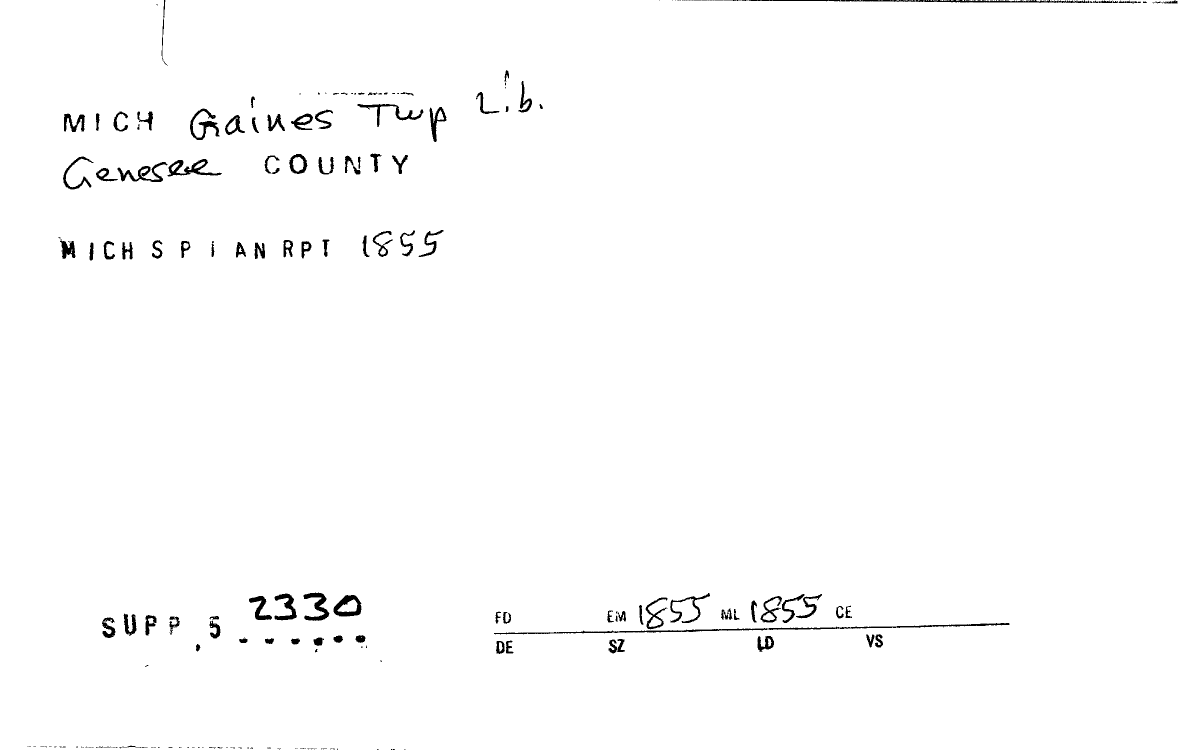 MICH Gaines Twp Lib.
Genesee COUNTY
MICH S P I AN RPT 1855
SUPP. 5 2330
FD EM 1855 ML 1855 CE
DE SZ LD VS